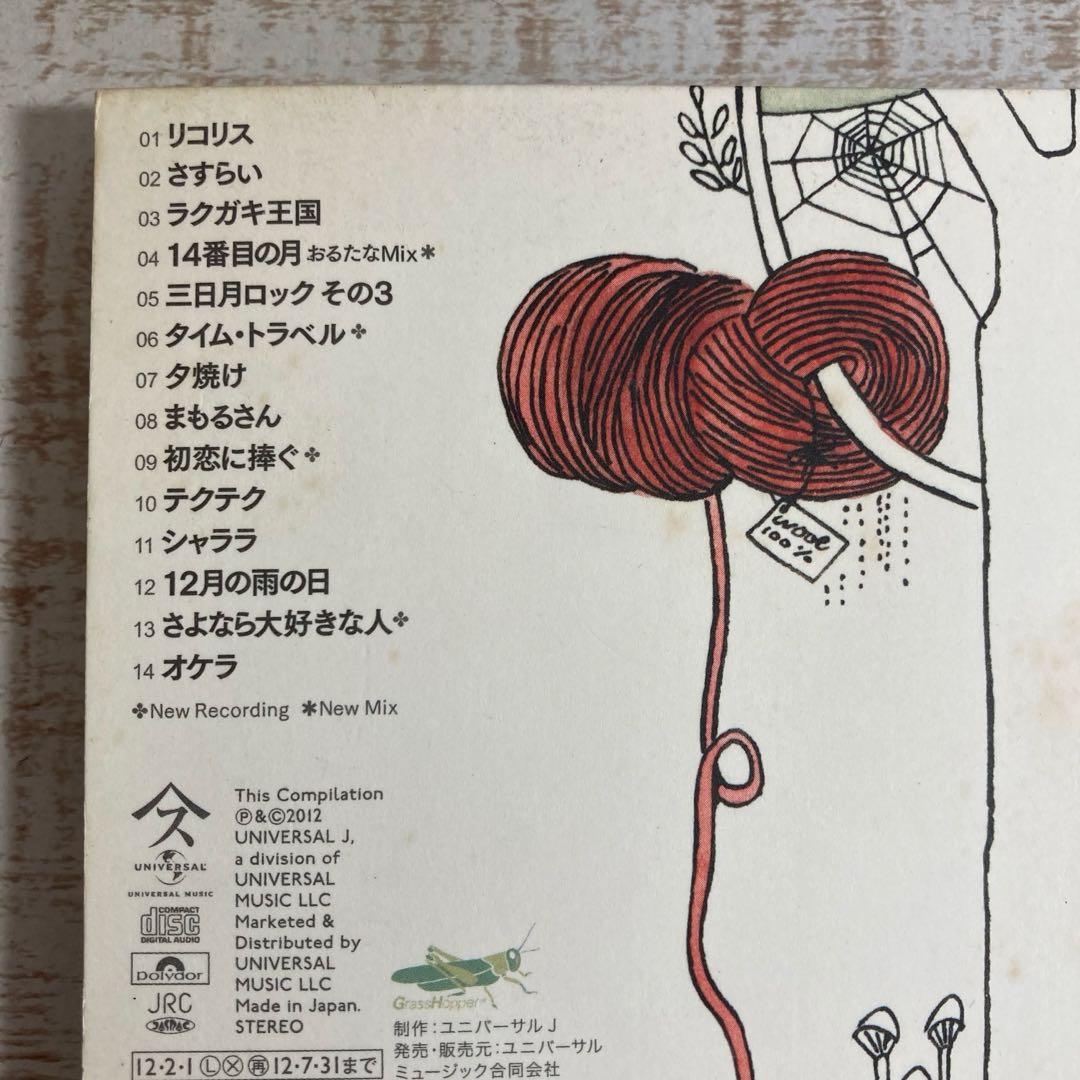 01 リコリス
02 さすらい
03 ラクガキ王国
04 14番目の月 おるたなMix✱
05 三日月ロック その3
06 タイム・トラベル✤
07 夕焼け
08 まもるさん
09 初恋に捧ぐ✤
10 テクテク
11 シャララ
12 12月の雨の日
13 さよなら大好きな人✤
14 オケラ
✤New Recording ✱New Mix
wool
100%
UNIVERSAL
UNIVERSAL MUSIC
COMPACT
disc
DIGITAL AUDIO
Polydor
JRC
This Compilation
Ⓟ&Ⓒ2012
UNIVERSAL J,
a division of
UNIVERSAL
MUSIC LLC
Marketed &
Distributed by
UNIVERSAL
MUSIC LLC
Made in Japan.
STEREO
GrassHopper
制作:ユニバーサル J
発売・販売元:ユニバーサル
ミュージック合同会社
12・2・1 Ⓛ Ⓧ 再 12・7・31まで